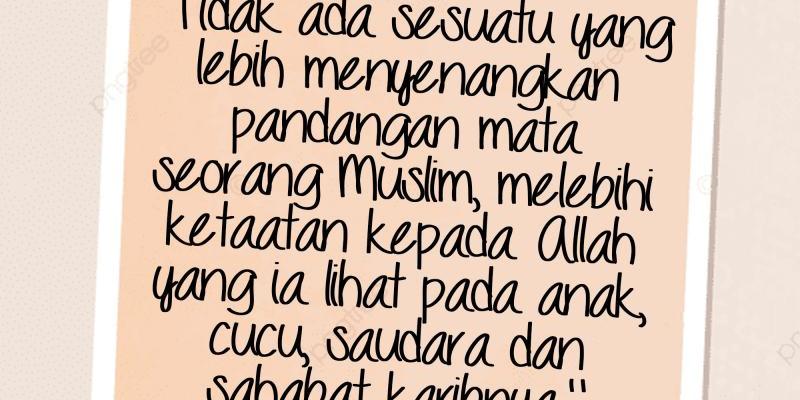 Tidak ada sesuatu yang
lebih menyenangkan
pandangan mata
seorang Muslim, melebihi
ketaatan kepada Allah
yang ia lihat pada anak,
cucu, saudara dan
sahabat karibnya"
pngtree